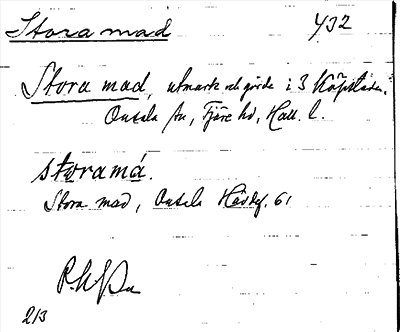 Stora mad 432
Stora mad, utmark och gärde i 3 Köpstaden.
Onsala sn, Fjäre hd, Hall. l.
storamá.
Stora mad, Onsala Hävdef. 61
213